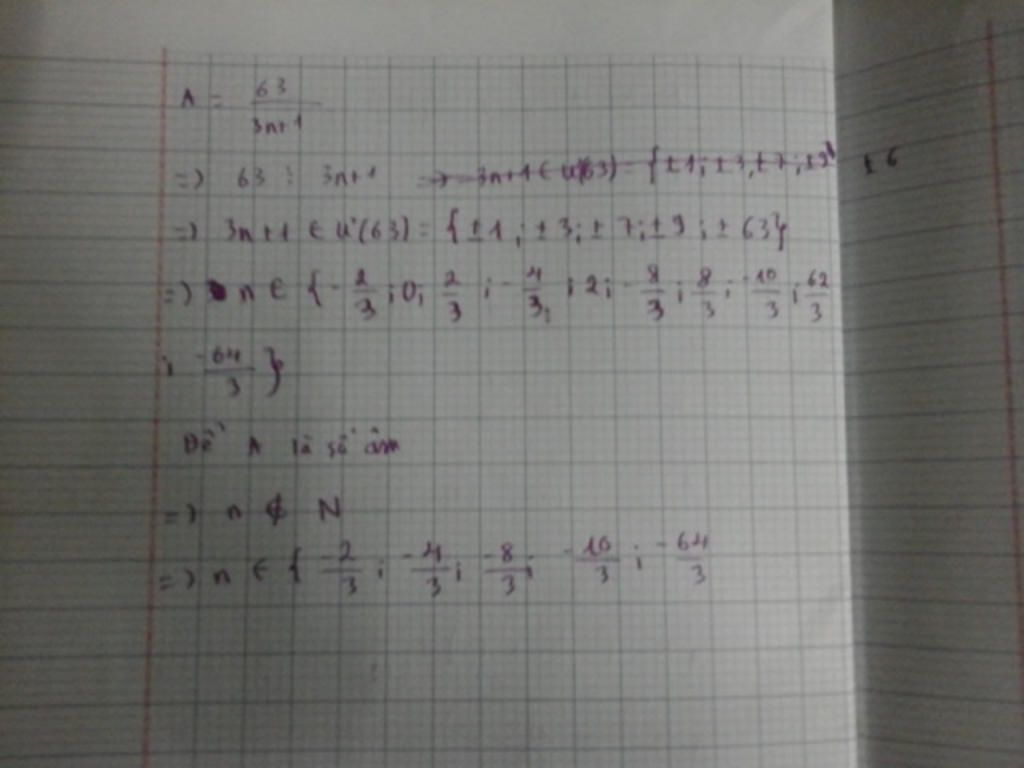 A = 63/3n+1
=> 63 ⋮ 3n+1 => 3n+1 ∈ Ư(63) = {±1; ±3, ±7; ±9
=> 3n+1 ∈ Ư(63) = {±1; ±3; ±7; ±9; ±63}
=> n ∈ {-2/3; 0; 2/3; -4/3; 2; -8/3; 8/3; -10/3; 62/3
; -64/3}
Để A là số âm
=> n ∉ N
=> n ∈ {-2/3; -4/3; -8/3; -10/3; -64/3